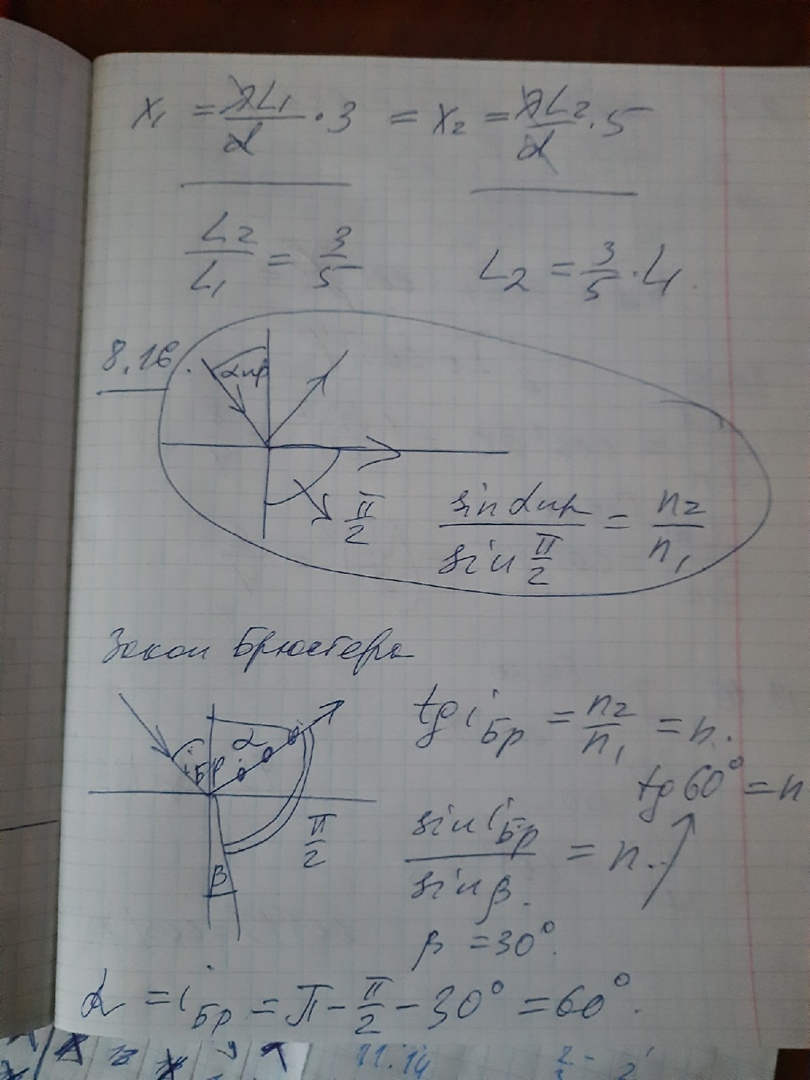 x₁ = λL₁/d · 3 = x₂ = λL₂/d · 5
L₂/L₁ = 3/5 L₂ = 3/5 · L₁.
8.16.
αпр
π/2
sin αпр / sin π/2 = n₂/n₁
Закон Брюстера
iБр α
β
π/2
tg iБр = n₂/n₁ = n.
tg 60° = n
sin iБр / sin β = n.
β = 30°.
α = iБр = π - π/2 - 30° = 60°.
11.14